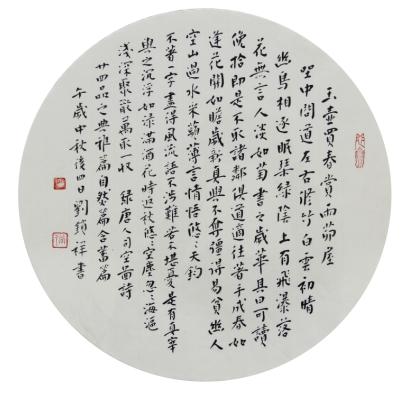 玉壺買春賞雨茆屋
坐中間道左右脩竹白雲初晴
幽鳥相逐眠琴綠陰上有飛瀑落
花無言人淡如菊書之歲華其曰可讀
俛拾即是不取諸鄰俱道適往著手成春如
逢花開如瞻歲新真與不奪彊得易貧幽人
空山過水采蘋薄言情悟悠〻天鈞
不著一字盡得風流語不涉難若不堪憂是有真宰
與之沉浮如淥滿酒花時返秋悠〻空塵忽〻海漚
淺深聚散萬取一收 錄唐人司空啚詩
廿四品之典雅篇自然篇含蓄篇
午歲中秋後四日劉鎖祥書